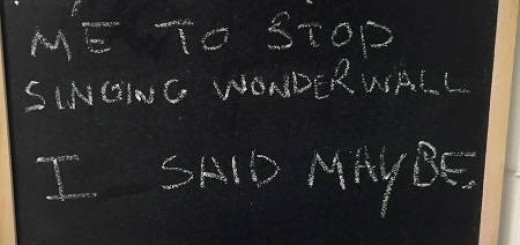 ME TO STOP
SINGING WONDERWALL
I SAID MAYBE